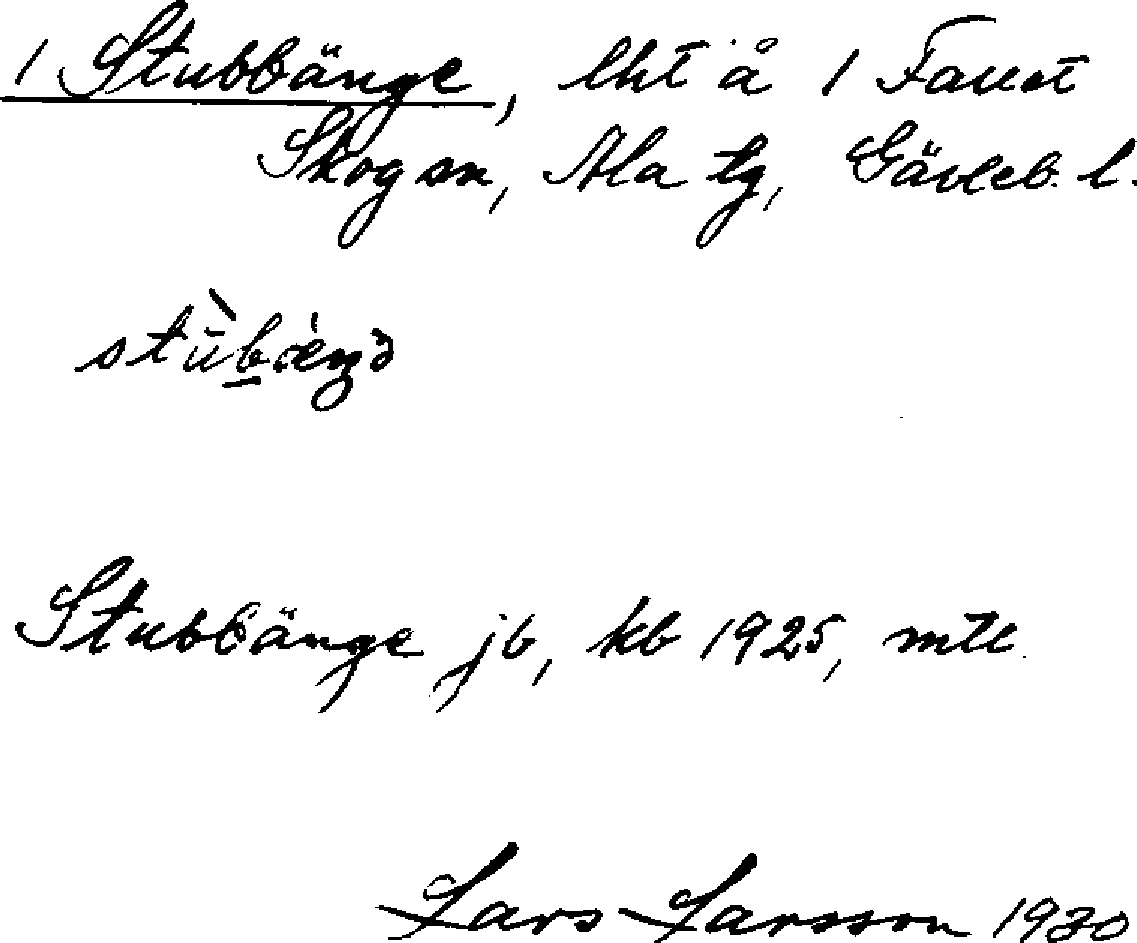 1 Stubbänge, lht å 1 Faust
Skog sn, Ala tg, Gävleb. l.
Stubbänge jb, kb 1925, mtl
Lars Larsson 1930